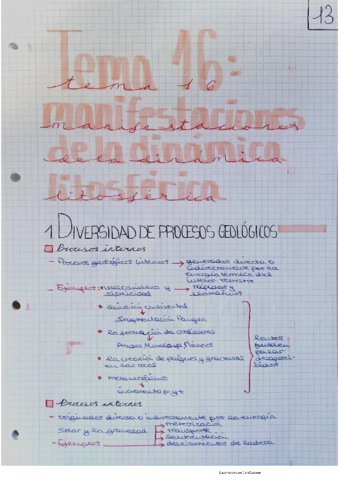 13
Tema 16:
tema 16
manifestaciones
manifestaciones
de la dinámica
de la dinámica
litosférica
litosférica
1 DIVERSIDAD DE PROCESOS GEOLÓGICOS
Procesos internos
- Procesos geológicos internos → generados directa o
indirectamente por la
energía térmica del
interior terrestre
- Ejemplos: vulcanismo y → rápidos y
sismicidad
• deriva continental
fragmentación Pangea
• la formación de cordilleras
• la creación de pliegues y fracturas
en las rocas
• metamorfismo
incremento p y t
lentos
pueden
pasar
Procesos externos
- originados directa o indirectamente por la energía
solar y la gravedad
meteorización
transporte
sedimentación
- Ejemplos → deslizamientos de ladera